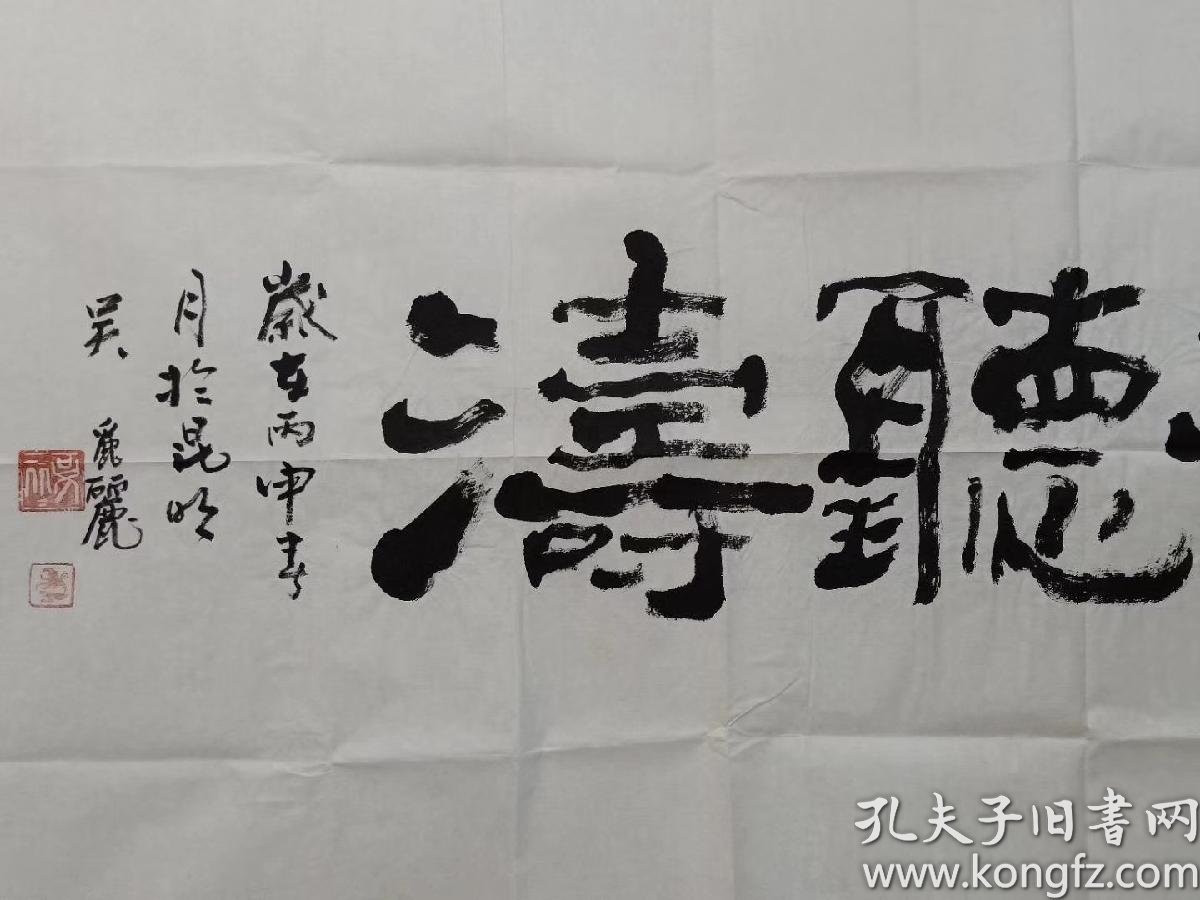 聽濤
歲在丙申春
月於昆明
吴
孔夫子旧書网
www.kongfz.com